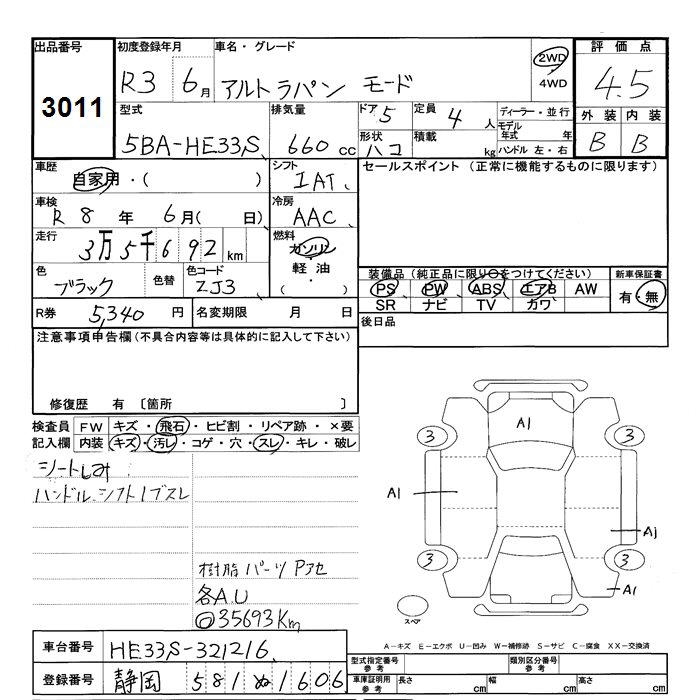 出品番号
3011
初度登録年月
R3 6月
車名・グレード
アルトラパン モード
2WD
4WD
評価点
4.5
外装 内装
B B
型式
5BA-HE33S
排気量
660 cc
ドア 5
定員 4 人
形状 ハコ
積載 kg
ディーラー・並行
モデル年式 年
ハンドル 左・右
車歴
自家用・( )
シフト
IAT
セールスポイント (正常に機能するものに限ります)
車検
R 8 年 6月( 日)
冷房
AAC
走行
3万5千692 km
燃料
ガソリン
軽油
( )
色
ブラック
色替
色コード
ZJ3
装備品(純正品に限り○をつけてください)
PS PW ABS エアB AW
SR ナビ TV カワ
新車保証書
有・無
R券 5,340 円
名変期限 月 日
後日品
注意事項申告欄(不具合内容等は具体的に記入して下さい)
修復歴 有 〔箇所 〕
検査員記入欄
FW キズ・飛石・ヒビ割・リペア跡・×要
内装 キズ・汚レ・コゲ・穴・スレ・キレ・破レ
シートしみ
ハンドル.シフトノブスレ
樹脂パーツPアセ
各A.U
◎35693Km
3
3
3
3
A1
A1
Aj
A1
スペア
A-キズ E-エクボ U-凹み W-補修跡 S-サビ C-腐食 XX-交換済
車台番号 HE33S-321216
登録番号 静岡 581 ぬ 1606
型式指定番号
参考
類別区分番号
参考
車庫証明用
参考
長さ cm
幅 cm
高さ cm